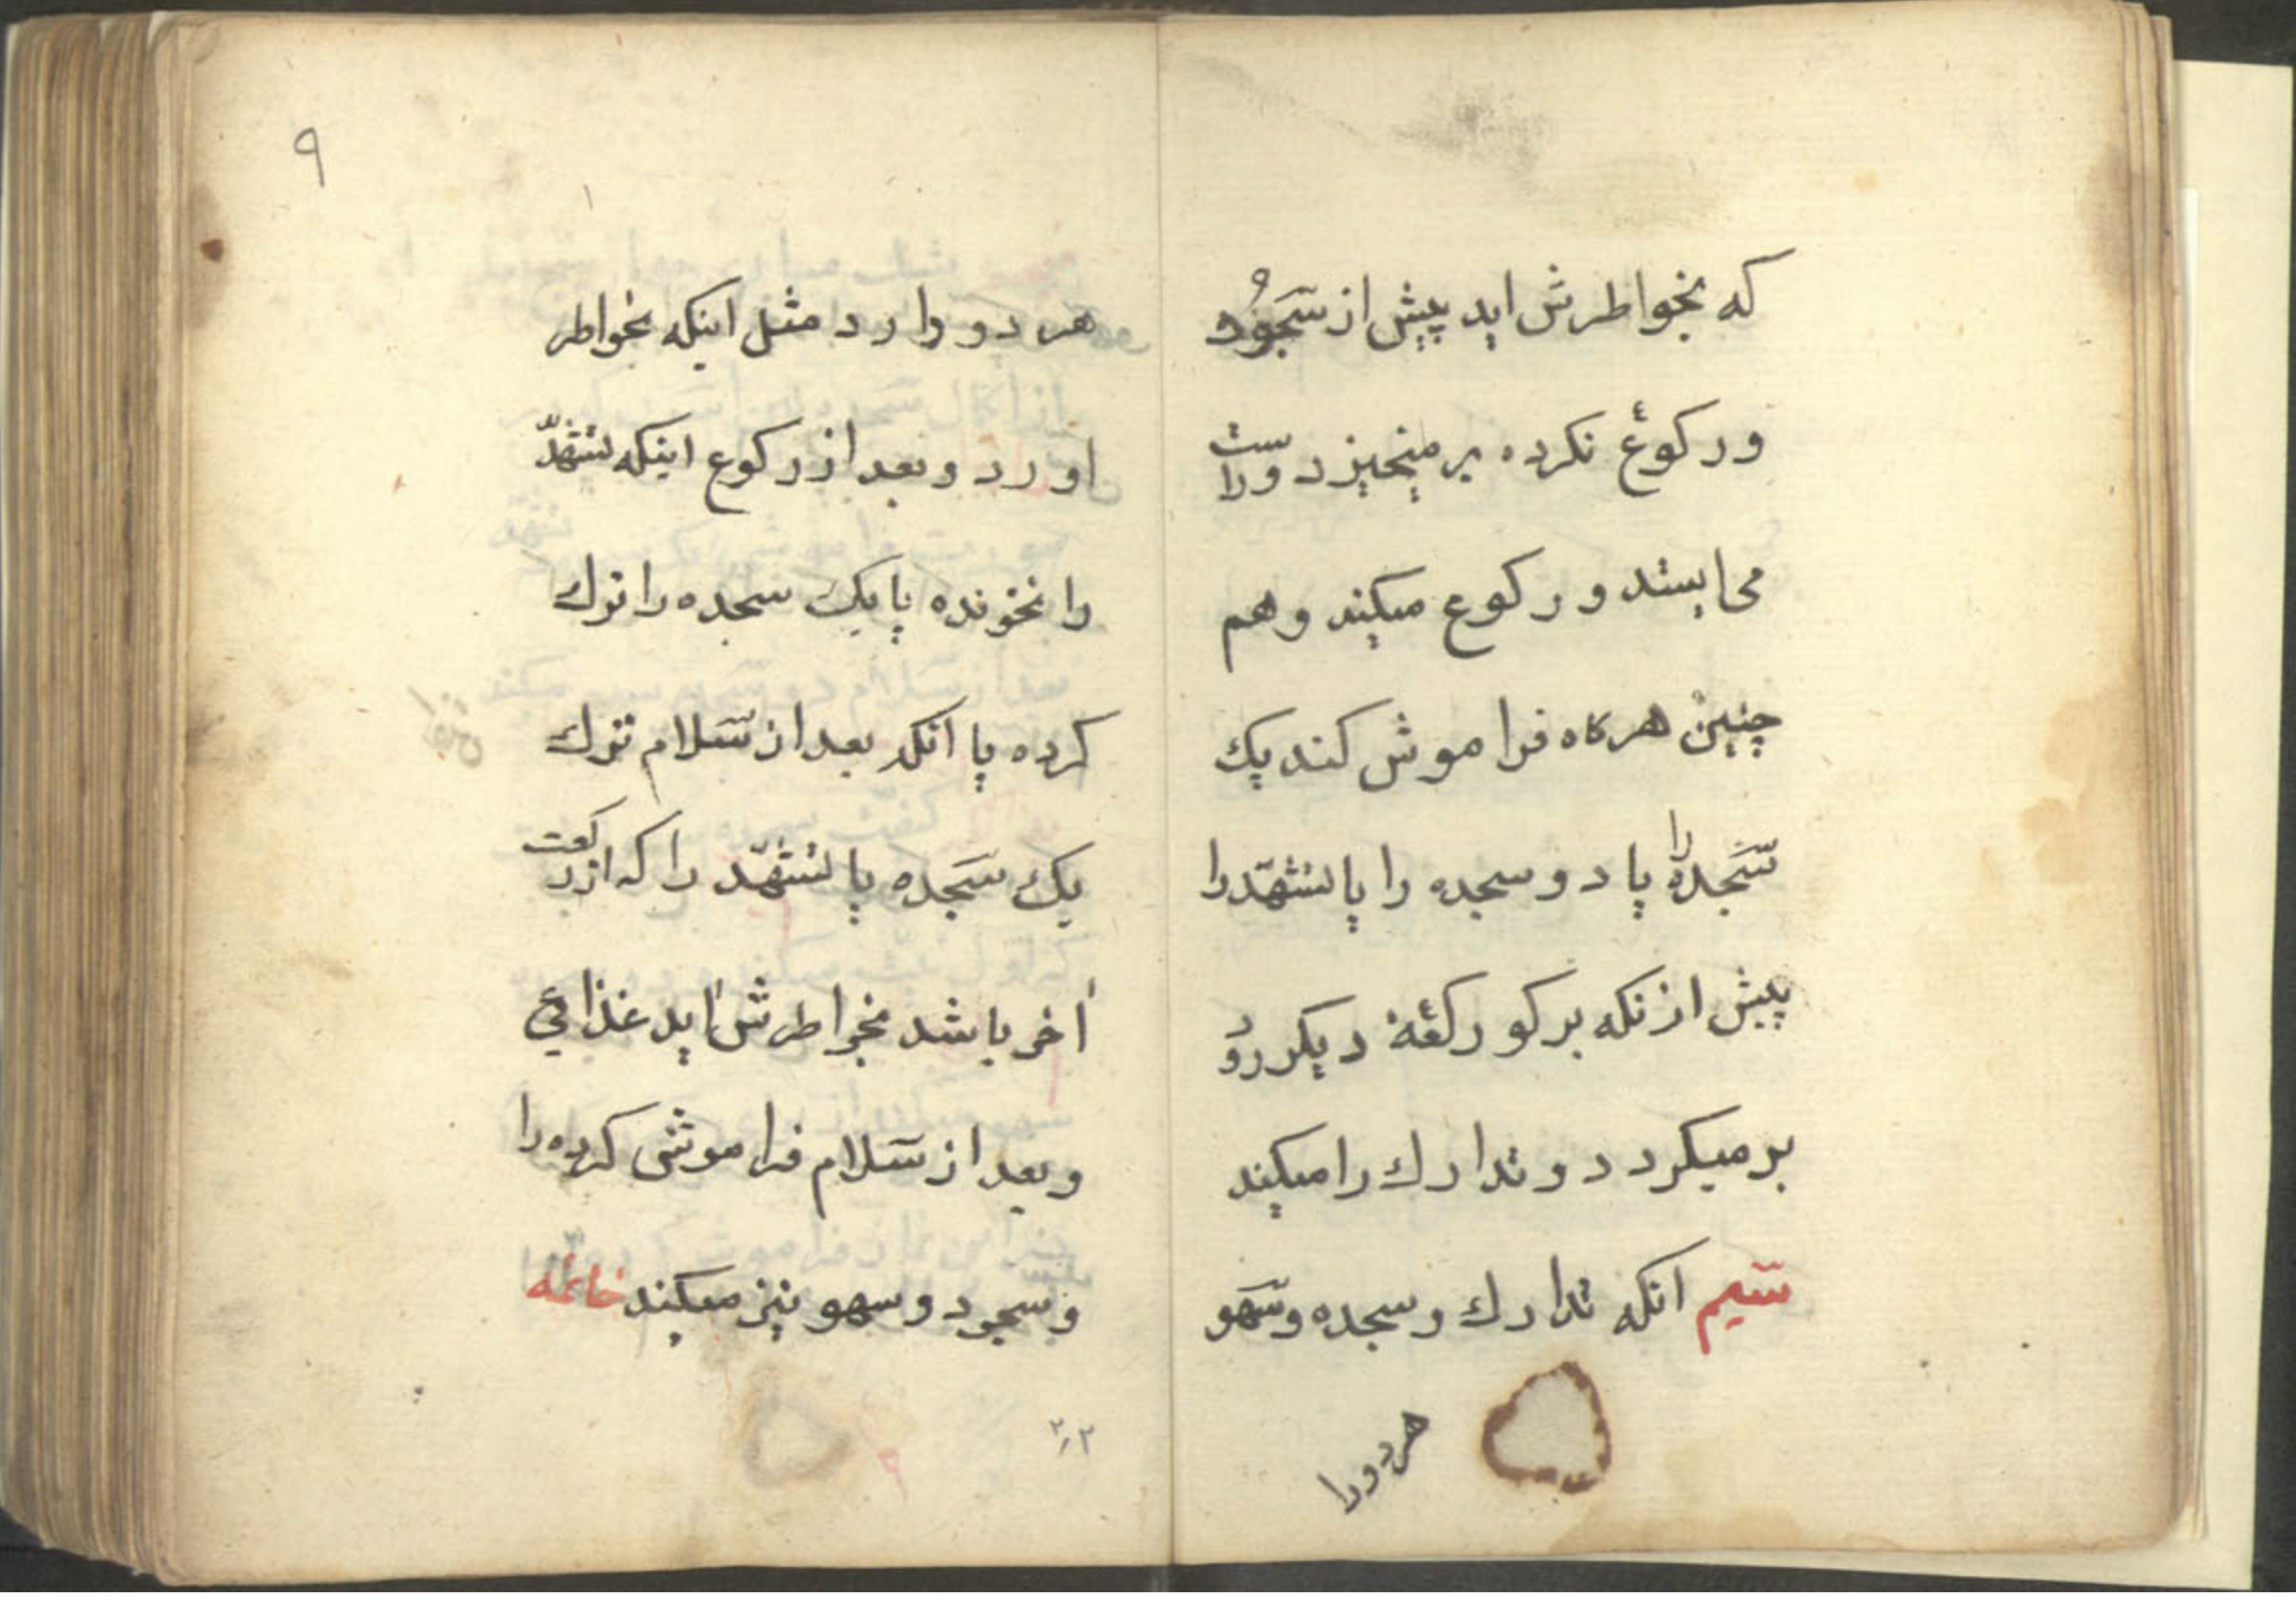 که بخواطرش اید پیش از سَجُود
و رکوع نکرده بر میخیزد و راست
می ایستد و رکوع میکند و هم
چنین هرکاه فراموش کند یک
سَجده را یا دو سجده را یا تشهّد را
پیش از نکه بر کو رکعهٔ دیکر رود
بر میکردد و تدارك را میکند
سیم انکه تدارك و سجده و سَهو
هر دو را
۹
هر دو دارد مثل اینکه بخواطر
اورد و بعد از رکوع اینکه تشهّد
را نخونده یا یک سجده را ترك
کرده یا انکه بعد از سَلام ترك
یک سَجده یا تشهّد را که از رکعت
اخر باشد بخواطرش اید غذا می
و بعد از سَلام فراموشی کرده را
و سجود و سهو نیز میکند خاتمه